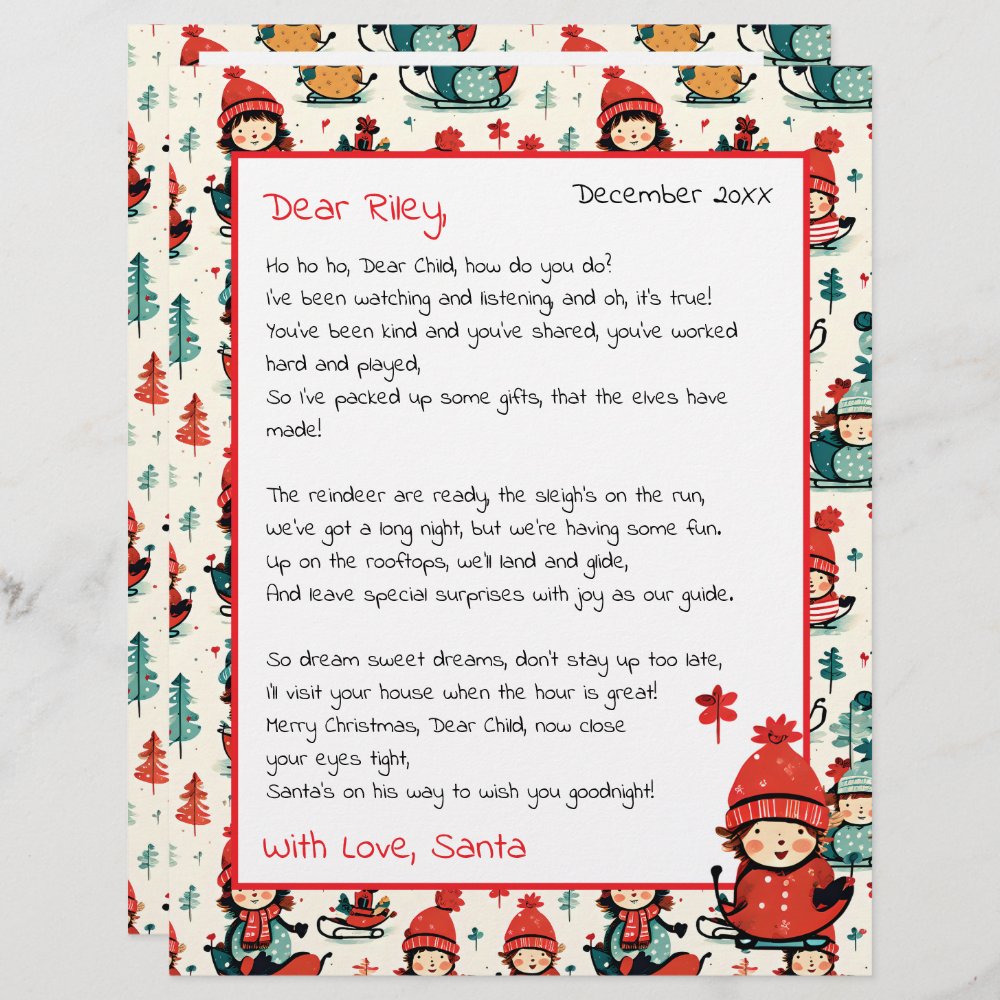 Dear Riley,
December 20XX
Ho ho ho, Dear Child, how do you do?
I've been watching and listening, and oh, it's true!
You've been kind and you've shared, you've worked
hard and played,
So I've packed up some gifts, that the elves have
made!
The reindeer are ready, the sleigh's on the run,
we've got a long night, but we're having some fun.
Up on the rooftops, we'll land and glide,
And leave special surprises with joy as our guide.
So dream sweet dreams, don't stay up too late,
I'll visit your house when the hour is great!
Merry Christmas, Dear Child, now close
your eyes tight,
Santa's on his way to wish you goodnight!
With Love, Santa